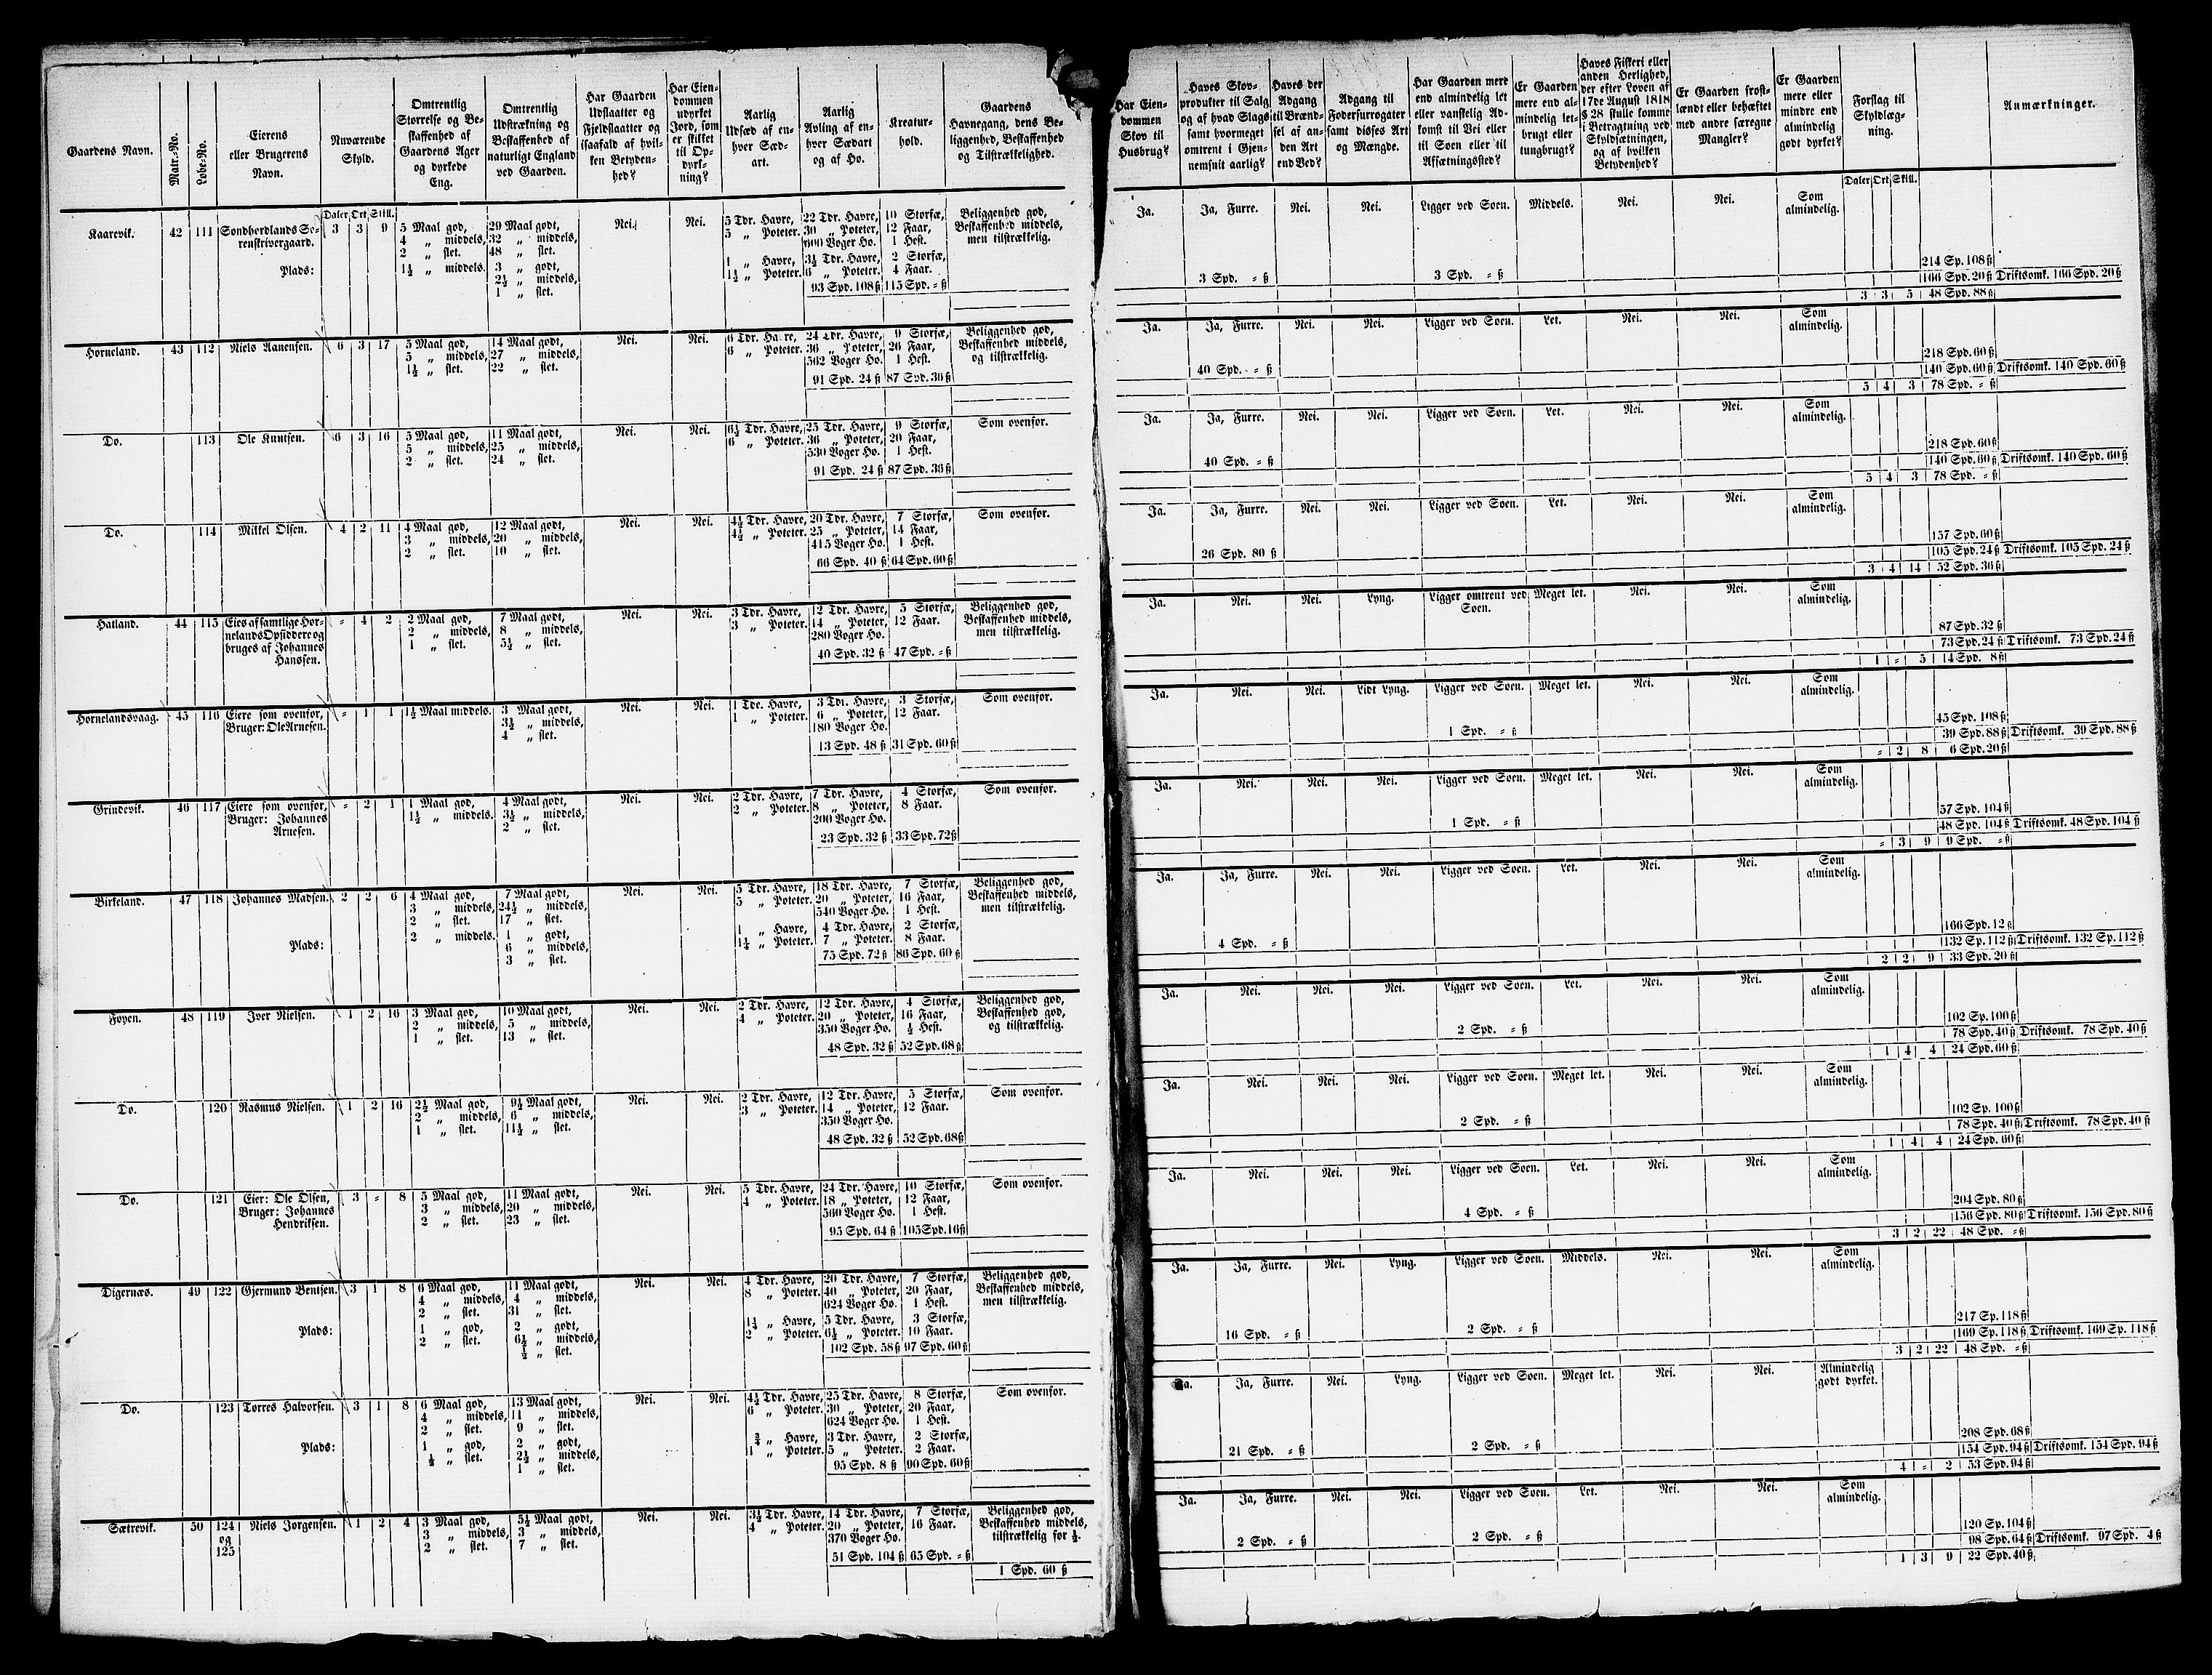 Gaardens Navn.
Matr.-No.
Løbe-No.
Eierens
eller Brugerens
Navn.
Nuværende
Skyld.
Omtrentlig
Størrelse og Be-
skaffenhed af
Gaardens Ager
og dyrkede
Eng.
Omtrentlig
Udstrækning og
Beskaffenhed af
naturligt England
ved Gaarden.
Har Gaarden
Udslaatter og
Fjeldslaatter og
isaafald af hvil-
ken Betyden-
hed?
Har Eien-
dommen
udyrket
Jord, som
er skikket
til Op-
dyrk-
ning?
Aarlig
Udsæd af en-
hver Sæd-
art.
Aarlig
Avling af en-
hver Sædart
og af Ho.
Kreatur-
hold.
Gaardens
Havnegang, dens Be-
liggenhed, Beskaffenhed
og Tilstrækkelighed.
Har Eien-
dommen
Skov til
Husbrug?
Haves Skov-
produkter til Salg
og af hvad Slags
samt hvormeget
omtrent i Gjen-
nemsnit aarlig?
Haves der
Adgang
til Brænd-
sel af an-
den Art
end Ved?
Adgang til
Fodersurrogater
samt disses Art
og Mængde.
Har Gaarden mere
end almindelig let
eller vanskelig Ad-
komst til Vei eller
til Søen eller til
Afsætningssted?
Er Gaarden
mere end al-
mindelig let-
brugt eller
tungbrugt?
Haves Fiskeri eller
anden Herlighed,
der efter Loven af
17de August 1818
§ 28 skulle komme
i Betragtning ved
Skyldsætningen,
og af hvilken
Betydenhed?
Er Gaarden frost-
lændt eller behæftet
med andre særegne
Mangler?
Er Gaarden
mere eller
mindre end
almindelig
godt dyrket?
Forslag til
Skyldlæg-
ning.
Anmærkninger.
Daler Ort Skill.
Daler Ort Skill.
Kaarevik. 42 111 Søndhordlands So- 3 3 9 5 Maal god, 29 Maal godt, Nei. Nei. 5 Tdr. Havre, 22 Tdr. Havre, 10 Storfæ, Beliggenhed god, Ja. Ja, Furre. Nei. Nei. Ligger ved Søen. Middels. Nei. Nei. Som
renskrivergaard. 4 „ middels, 32 „ middels, 5 „ Poteter. 30 „ Poteter, 12 Faar, Beskaffenhed middels, almindelig.
2 „ slet. 48 „ slet. 600 Voger Ho. 1 Hest. men tilstrækkelig.
Plads: 1½ „ middels. 3 „ godt, 1 „ Havre, 3½ Tdr. Havre, 2 Storfæ, 214 Sp. 108 ß
2½ „ middels, 1½ „ Poteter. 6 „ Poteter. 4 Faar. 3 Spd. = ß 3 Spd. = ß 166 Spd. 20 ß Driftsomk. 166 Spd. 20 ß
1 „ slet. 93 Spd. 108 ß 115 Spd. = ß 3 3 5 48 Spd. 88 ß
Horneland. 43 112 Niels Aanensen. 6 3 17 5 Maal god, 14 Maal godt, Nei. Nei. 6 Tdr. Havre, 24 Tdr. Havre, 9 Storfæ, Beliggenhed god, Ja. Ja, Furre. Nei. Nei. Ligger ved Søen. Let. Nei. Nei. Som
5 „ middels, 27 „ middels, 6 „ Poteter. 36 „ Poteter, 26 Faar, Beskaffenhed middels, almindelig.
1½ „ slet. 22 „ slet. 562 Voger Ho. 1 Hest. og tilstrækkelig. 218 Spd. 60 ß
91 Spd. 24 ß 87 Spd. 36 ß 40 Spd. = ß 140 Spd. 60 ß Driftsomk. 140 Spd. 60 ß
5 4 3 78 Spd. = ß
Do. 113 Ole Knutsen. 6 3 16 5 Maal god, 11 Maal godt, Nei. Nei. 6½ Tdr. Havre, 25 Tdr. Havre, 9 Storfæ, Som ovenfor. Ja. Ja, Furre. Nei. Nei. Ligger ved Søen. Let. Nei. Nei. Som
5 „ middels, 25 „ middels, 6 „ Poteter. 36 „ Poteter, 20 Faar, almindelig.
2 „ slet. 24 „ slet. 530 Voger Ho. 1 Hest. 218 Spd. 60 ß
91 Spd. 24 ß 87 Spd. 36 ß 40 Spd. = ß 140 Spd. 60 ß Driftsomk. 140 Spd. 60 ß
5 4 3 78 Spd. = ß
Do. 114 Mikkel Olsen. 4 2 11 4 Maal god, 12 Maal godt, Nei. Nei. 4½ Tdr. Havre, 20 Tdr. Havre, 7 Storfæ, Som ovenfor. Ja. Ja, Furre. Nei. Nei. Ligger ved Søen. Let. Nei. Nei. Som
3 „ middels, 20 „ middels, 4½ „ Poteter. 25 „ Poteter, 14 Faar, almindelig.
2 „ slet. 10 „ slet. 415 Voger Ho. 1 Hest. 157 Spd. 60 ß
66 Spd. 40 ß 64 Spd. 60 ß 26 Spd. 80 ß 105 Spd. 24 ß Driftsomk. 105 Spd. 24 ß
3 4 14 52 Spd. 36 ß
Hatland. 44 115 Eies af samtlige Hor- = 4 2 2 Maal god, 7 Maal godt, Nei. Nei. 3 Tdr. Havre, 12 Tdr. Havre, 5 Storfæ, Beliggenhed god, Ja. Nei. Nei. Lyng. Ligger omtrent ved Meget let. Nei. Nei. Som
nelands Opsiddere og 2 „ middels, 8 „ middels, 3 „ Poteter. 14 „ Poteter, 12 Faar. Beskaffenhed middels, Søen. almindelig.
bruges af Johannes 1 „ slet. 5½ „ slet. 280 Voger Ho. men tilstrækkelig. 87 Spd. 32 ß
Hanssen. 40 Spd. 32 ß 47 Spd. = ß 73 Spd. 24 ß Driftsomk. 73 Spd. 24 ß
1 = 5 14 Spd. 8 ß
Hornelandsvaag. 45 116 Eiere som ovenfor, = 1 1 1½ Maal middels. 3 Maal godt, Nei. Nei. 1 Tde. Havre, 3 Tdr. Havre, 3 Storfæ, Som ovenfor. Ja. Nei. Nei. Lidt Lyng. Ligger ved Søen. Meget let. Nei. Nei. Som
Bruger: Ole Arnesen. 3½ „ middels, 1 „ Poteter. 6 „ Poteter, 12 Faar. almindelig.
4 „ slet. 180 Voger Ho. 45 Spd. 108 ß
13 Spd. 48 ß 31 Spd. 60 ß 1 Spd. = ß 39 Spd. 88 ß Driftsomk. 39 Spd. 88 ß
= 2 8 6 Spd. 20 ß
Grindevik. 46 117 Eiere som ovenfor, = 2 1 1 Maal god, 4 Maal godt, Nei. Nei. 2 Tdr. Havre, 7 Tdr. Havre, 4 Storfæ, Som ovenfor. Ja. Nei. Nei. Nei. Ligger ved Søen. Meget let. Nei. Nei. Som
Bruger: Johannes 1½ „ middels. 3½ „ middels, 2 „ Poteter. 8 „ Poteter, 8 Faar. almindelig.
Arnesen. 2 „ slet. 200 Voger Ho. 57 Spd. 104 ß
23 Spd. 32 ß 33 Spd. 72 ß 1 Spd. = ß 48 Spd. 104 ß Driftsomk. 48 Spd. 104 ß
= 3 9 9 Spd. = ß
Birkeland. 47 118 Johannes Madsen. 2 2 6 4 Maal god, 7 Maal godt, Nei. Nei. 5 Tdr. Havre, 18 Tdr. Havre, 7 Storfæ, Beliggenhed god, Ja. Ja, Furre. Nei. Nei. Ligger ved Søen. Let. Nei. Nei. Som
3 „ middels, 24½ „ middels, 5 „ Poteter. 20 „ Poteter, 16 Faar, Beskaffenhed middels, almindelig.
2 „ slet. 17 „ slet. 540 Voger Ho. 1 Hest. men tilstrækkelig.
Plads: 2 „ middels. 1 „ godt, 1 „ Havre, 4 Tdr. Havre, 2 Storfæ, 166 Spd. 12 ß
6 „ middels, 1½ „ Poteter. 7 „ Poteter. 8 Faar. 4 Spd. = ß 132 Sp. 112 ß Driftsomk. 132 Sp. 112 ß
3 „ slet. 75 Spd. 72 ß 86 Spd. 60 ß 2 2 9 33 Spd. 20 ß
Føyen. 48 119 Iver Nielsen. 1 2 16 3 Maal god, 10 Maal godt, Nei. Nei. 2 Tdr. Havre, 12 Tdr. Havre, 4 Storfæ, Beliggenhed god, Ja. Nei. Nei. Nei. Ligger ved Søen. Let. Nei. Nei. Som
2 „ middels, 5 „ middels, 4 „ Poteter. 20 „ Poteter, 16 Faar, Beskaffenhed god, almindelig.
1 „ slet. 13 „ slet. 350 Voger Ho. ½ Hest. og tilstrækkelig. 102 Sp. 100 ß
48 Spd. 32 ß 52 Spd. 68 ß 2 Spd. = ß 78 Spd. 40 ß Driftsomk. 78 Spd. 40 ß
1 4 4 24 Spd. 60 ß
Do. 120 Rasmus Nielsen. 1 2 16 2½ Maal god, 9½ Maal godt, Nei. Nei. 2 Tdr. Havre, 12 Tdr. Havre, 5 Storfæ, Som ovenfor. Ja. Nei. Nei. Nei. Ligger ved Søen. Meget let. Nei. Nei. Som
2 „ middels, 6 „ middels, 3 „ Poteter. 14 „ Poteter, 12 Faar. almindelig.
1 „ slet. 11½ „ slet. 350 Voger Ho. 102 Sp. 100 ß
48 Spd. 32 ß 52 Spd. 68 ß 2 Spd. = ß 78 Spd. 40 ß Driftsomk. 78 Spd. 40 ß
1 4 4 24 Spd. 60 ß
Do. 121 Eier: Ole Olsen, 3 = 8 5 Maal god, 11 Maal godt, Nei. Nei. 5 Tdr. Havre, 24 Tdr. Havre, 10 Storfæ, Som ovenfor. Ja. Nei. Nei. Nei. Ligger ved Søen. Let. Nei. Nei. Som
Bruger: Johannes 3 „ middels, 20 „ middels, 4 „ Poteter. 18 „ Poteter, 12 Faar, almindelig.
Hendriksen. 2 „ slet. 23 „ slet. 560 Voger Ho. 1 Hest. 204 Spd. 80 ß
95 Spd. 64 ß 105 Spd. 16 ß 4 Spd. = ß 156 Spd. 80 ß Driftsomk. 156 Spd. 80 ß
3 2 22 48 Spd. = ß
Digernæs. 49 122 Gjermund Bentsen. 3 1 8 6 Maal god, 11 Maal godt, Nei. Nei. 4 Tdr. Havre, 20 Tdr. Havre, 7 Storfæ, Beliggenhed god, Ja. Ja, Furre. Nei. Lyng. Ligger ved Søen. Middels. Nei. Nei. Som
4 „ middels, 4 „ middels, 8 „ Poteter. 40 „ Poteter, 20 Faar, Beskaffenhed middels, almindelig.
2 „ slet. 31 „ slet. 624 Voger Ho. 1 Hest. men tilstrækkelig.
Plads: 1 „ god, 2 „ godt, 1¼ „ Havre, 5 Tdr. Havre, 3 Storfæ, 217 Sp. 118 ß
2 „ slet. 6½ „ middels, 2 „ Poteter. 6½ „ Poteter. 10 Faar. 16 Spd. = ß 2 Spd. = ß 169 Sp. 118 ß Driftsomk. 169 Sp. 118 ß
½ „ slet. 102 Spd. 58 ß 97 Spd. 60 ß 3 2 22 48 Spd. = ß
Do. 123 Torres Halvorsen. 3 1 8 6 Maal god, 13 Maal godt, Nei. Nei. 4½ Tdr. Havre, 25 Tdr. Havre, 8 Storfæ, Som ovenfor. Ja. Ja, Furre. Nei. Lyng. Ligger ved Søen. Meget let. Nei. Nei. Almindelig
4 „ middels, 11 „ middels, 6 „ Poteter. 30 „ Poteter, 20 Faar, godt dyrket.
2 „ slet. 9 „ slet. 624 Voger Ho. 1 Hest.
Plads: 1 „ god, 2 „ godt, ¾ „ Havre, 3 Tdr. Havre, 2 Storfæ, 208 Spd. 68 ß
½ „ slet. 2½ „ middels, 1 „ Poteter. 5 „ Poteter. 2 Faar. 21 Spd. = ß 2 Spd. = ß 154 Spd. 94 ß Driftsomk. 154 Spd. 94 ß
1 „ slet. 95 Spd. 8 ß 90 Spd. 60 ß 4 = 2 53 Spd. 94 ß
Sætrevik. 50 124 Niels Jørgensen. 1 2 4 3 Maal god, 5½ Maal godt, Nei. Nei. 3½ Tdr. Havre, 14 Tdr. Havre, 7 Storfæ, Beliggenhed god, Ja. Ja, Furre. Nei. Nei. Ligger ved Søen. Let. Nei. Nei. Som
og 3 „ middels, 3 „ middels, 4 „ Poteter. 20 „ Poteter, 16 Faar. Beskaffenhed middels, almindelig.
125 2 „ slet. 7 „ slet. 370 Voger Ho. tilstrækkelig for ½. 120 Sp. 104 ß
51 Spd. 104 ß 65 Spd. = ß 2 Spd. = ß 2 Spd. = ß 98 Spd. 64 ß Driftsomk. 97 Spd. 4 ß
1 Spd. 60 ß 1 3 9 22 Spd. 40 ß